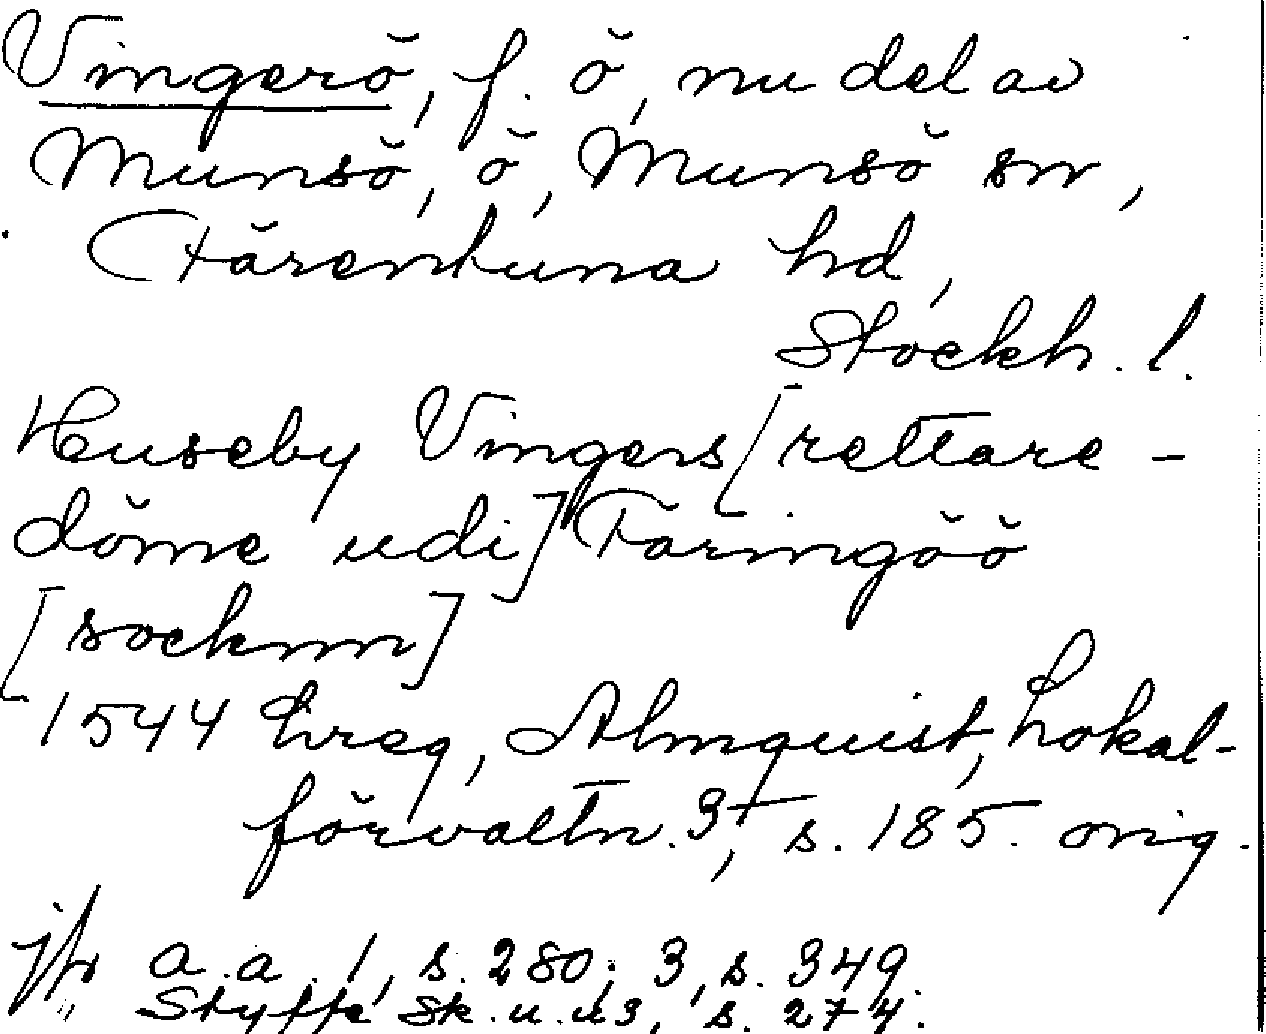 Vingerö, f. ö, nu del av
Munsö, ö, Munsö sn,
Färentuna hd,
Stockh. l.
Huseby Vingers [rettare-
döme udi] Färingöö
[socknn]
1544 hreg, Almquist, Lokal-
förvaltn. 3, s. 185. orig.
jfr a.a. 1, s. 280; 3, s. 349.
Styffe Sk. u. u3, s. 274.